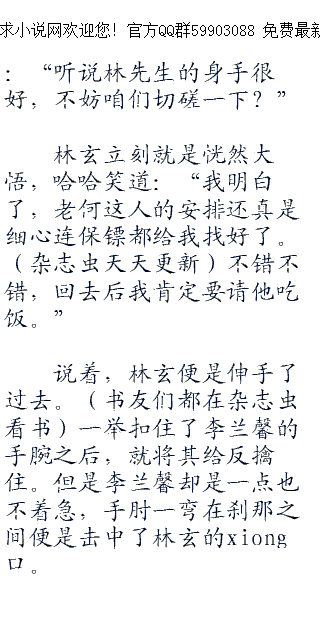 求小说网欢迎您！官方QQ群59903088 免费最新
：“听说林先生的身手很
好，不妨咱们切磋一下？”
林玄立刻就是恍然大
悟，哈哈笑道：“我明白
了，老何这人的安排还真是
细心连保镖都给我找好了。
（杂志虫天天更新）不错不
错，回去后我肯定要请他吃
饭。”
说着，林玄便是伸手了
过去。（书友们都在杂志虫
看书）一举扣住了李兰馨的
手腕之后，就将其给反擒
住。但是李兰馨却是一点也
不着急，手肘一弯在刹那之
间便是击中了林玄的xiong
口。